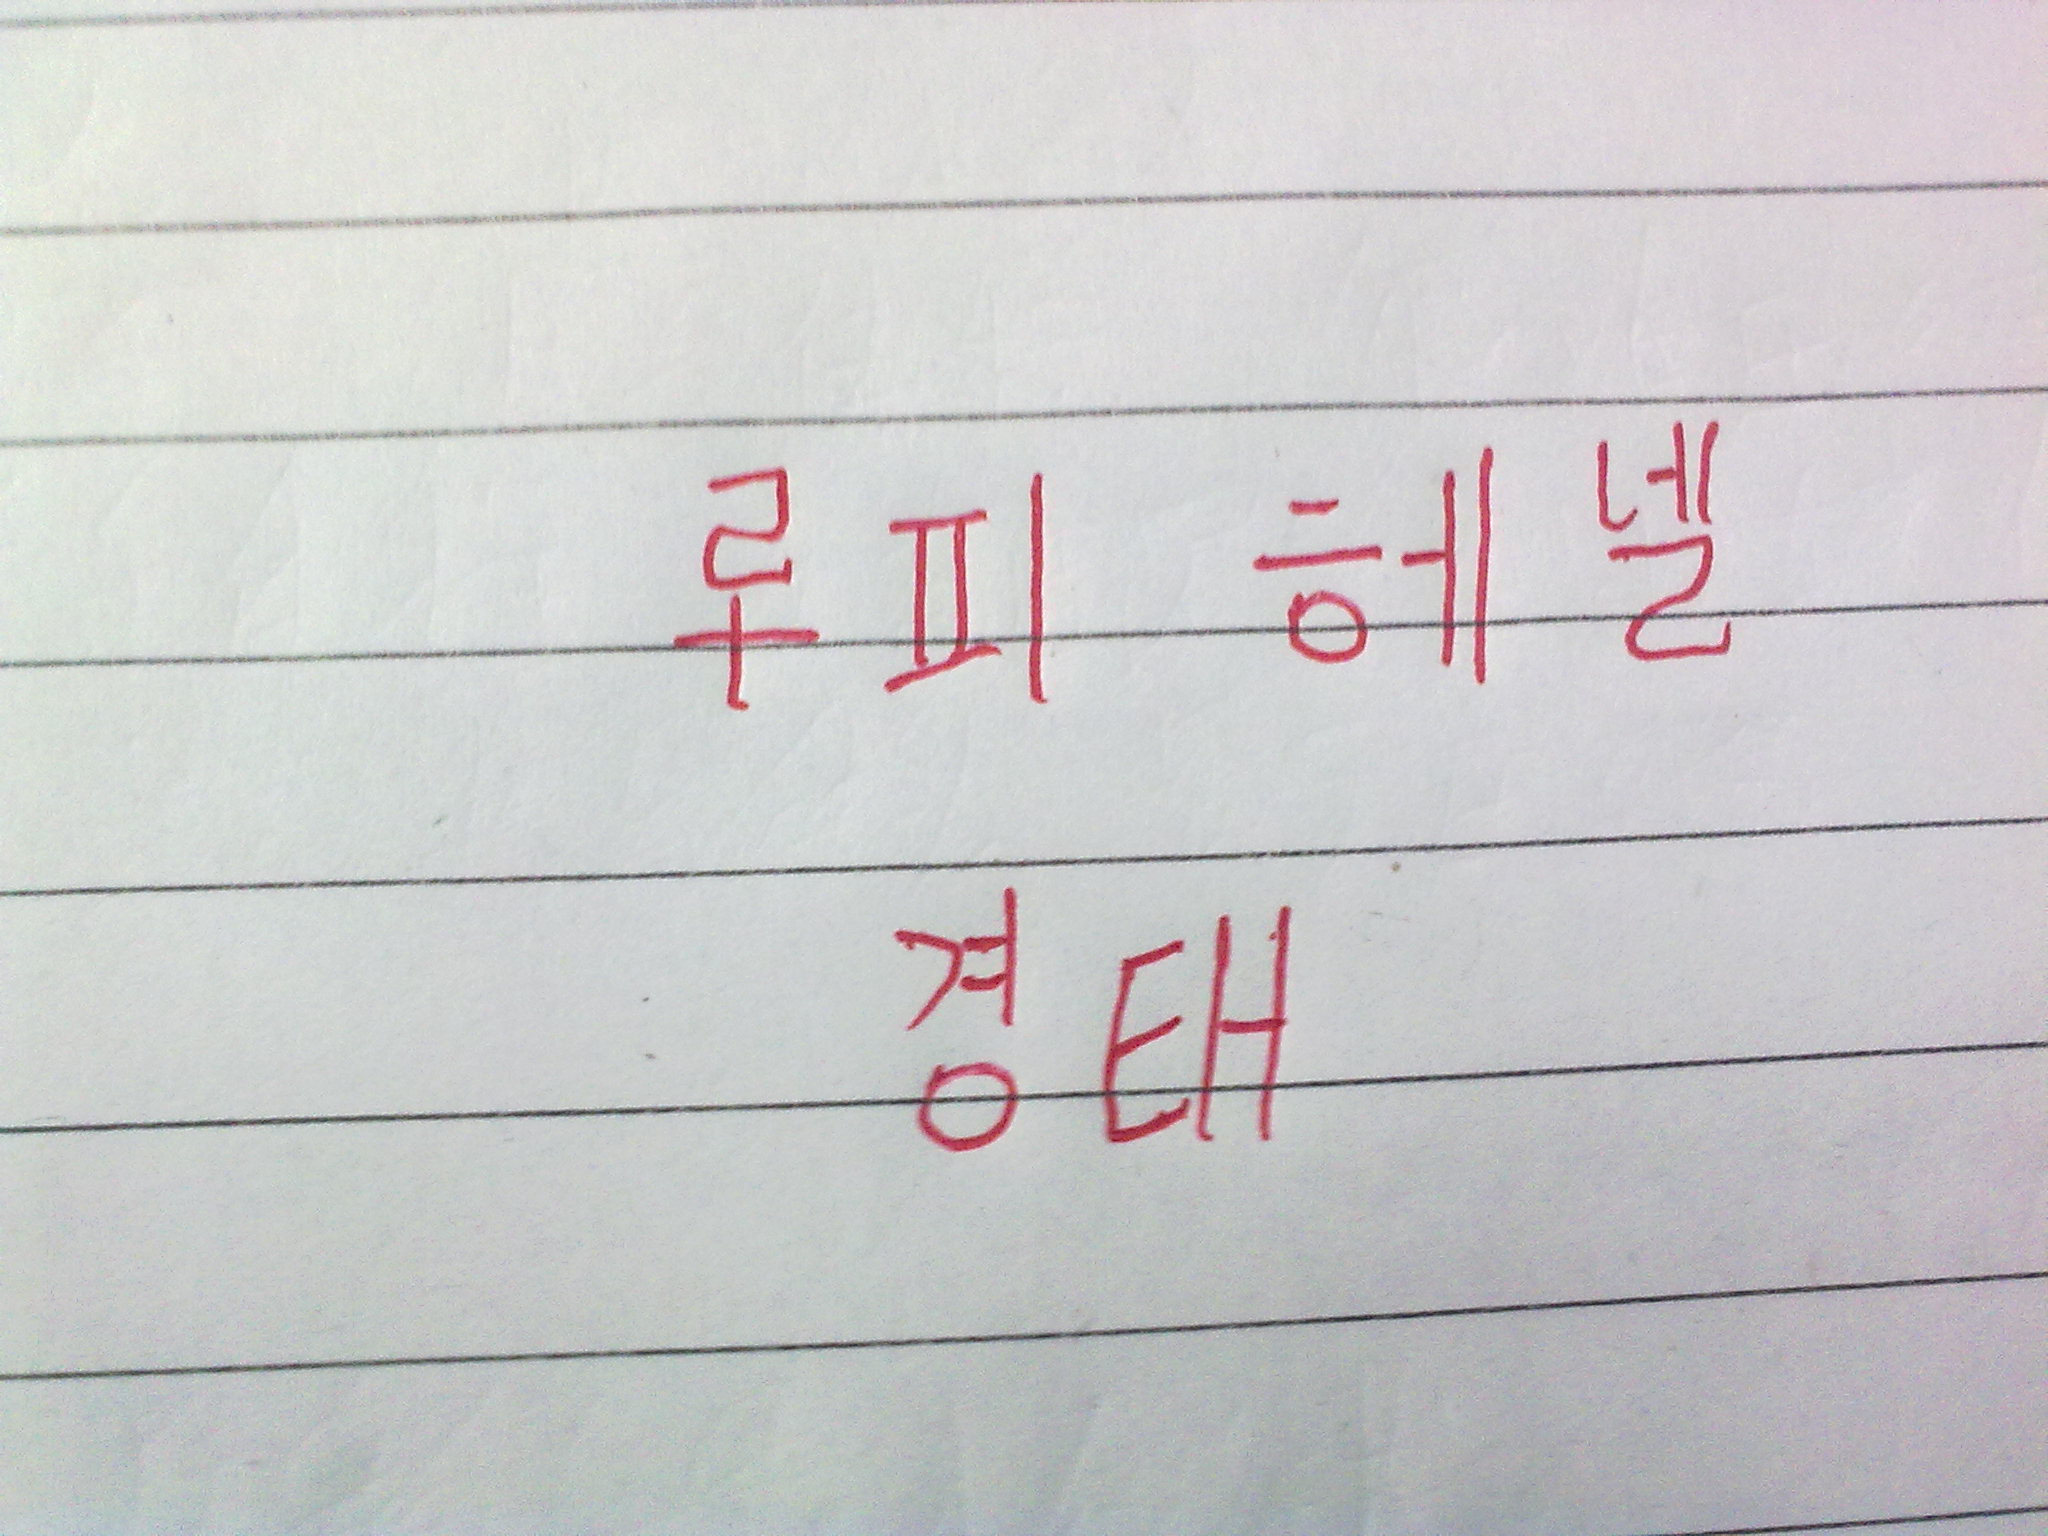 루피 헤넬
경태